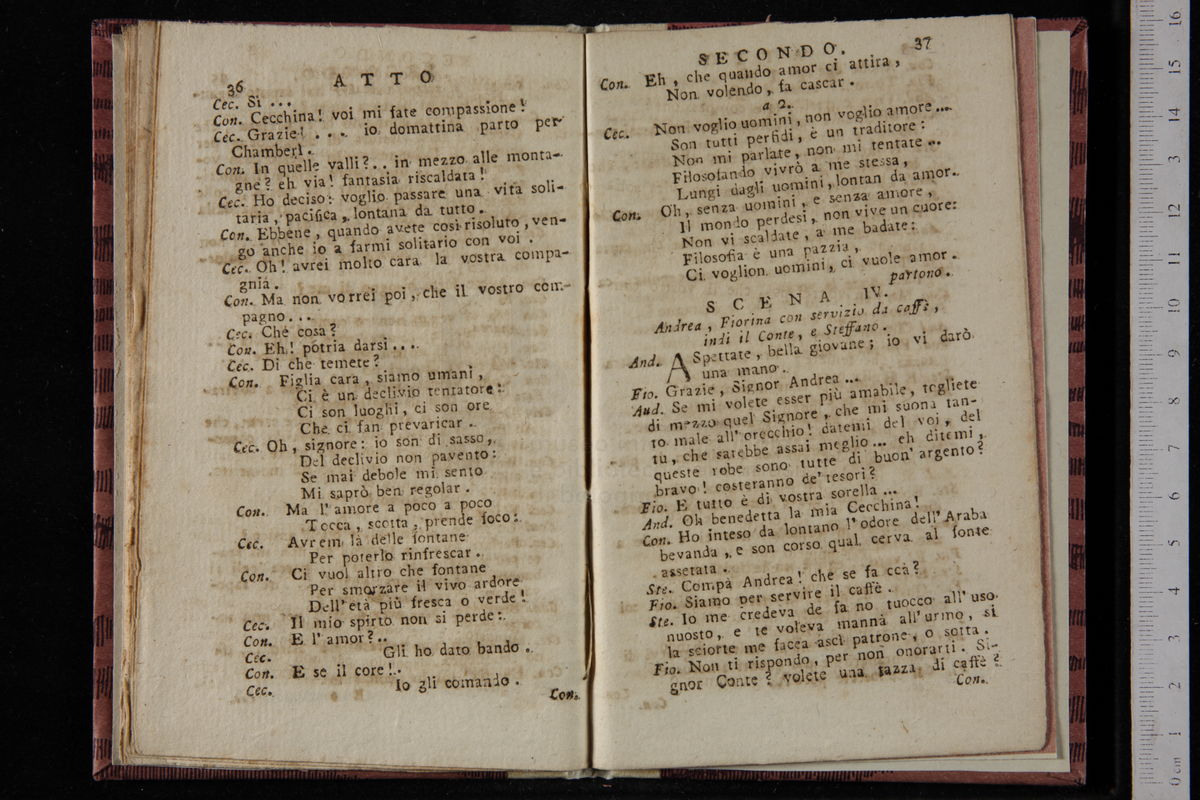 36
ATTO
Cec. Sì ...
Con. Cecchina! voi mi fate compassione!
Cec. Grazie! .... io domattina parto per
Chamberì.
Con. In quelle valli?.. in mezzo alle monta-
gne? eh via! fantasia riscaldata!
Cec. Ho deciso: voglio passare una vita soli-
taria, pacifica, lontana da tutto.
Con. Ebbene, quando avete così risoluto, ven-
go anche io a farmi solitario con voi.
Cec. Oh! avrei molto cara la vostra compa-
gnia.
Con. Ma non vorrei poi, che il vostro com-
pagno...
Cec. Che cosa?
Con. Eh! potria darsi....
Cec. Di che temete?
Con. Figlia cara, siamo umani,
Ci è un declivio tentatore:
Ci son luoghi, ci son ore
Che ci fan prevaricar.
Cec. Oh, signore: io son di sasso,
Del declivio non pavento:
Se mai debole mi sento
Mi saprò ben regolar.
Con. Ma l'amore a poco a poco
Tocca, scotta, prende foco:
Cec. Avrem là delle fontane
Per poterlo rinfrescar.
Con. Ci vuol altro che fontane
Per smorzare il vivo ardore
Dell'età più fresca o verde!
Cec. Il mio spirto non si perde:
Con. E l'amor?..
Cec. Gli ho dato bando.
Con. E se il core!..
Cec. Io gli comando.
Con.
SECONDO.
37
Con. Eh, che quando amor ci attira,
Non volendo, fa cascar.
a 2.
Cec. Non voglio uomini, non voglio amore....
Son tutti perfidi, è un traditore:
Non mi parlate, non mi tentate...
Filosofando vivrò a me stessa,
Lungi dagli uomini, lontan da amor.
Con. Oh, senza uomini, e senza amore,
Il mondo perdesi, non vive un cuore:
Non vi scaldate, a me badate:
Filosofia è una pazzia,
Ci voglion uomini, ci vuole amor.
partono.
SCENA IV.
Andrea, Fiorina con servizio da caffè,
indi il Conte, e Steffano.
And. ASpettate, bella giovane; io vi darò
una mano.
Fio. Grazie, Signor Andrea...
Aud. Se mi volete esser più amabile, togliete
di mezzo quel Signore, che mi suona tan-
to male all'orecchio! datemi del voi, del
tu, che sarebbe assai meglio... eh ditemi,
queste robe sono tutte di buon'argento?
bravo! costeranno de'tesori?
Fio. E tutto è di vostra sorella...
And. Oh benedetta la mia Cecchina!
Con. Ho inteso da lontano l'odore dell'Araba
bevanda, e son corso qual cerva al fonte
assetata.
Ste. Compà Andrea! che se fa ccà?
Fio. Siamo per servire il caffè.
Ste. Io me credeva de fa no tuocco all'uso
nuosto, e te voleva mannà all'urmo, si
la sciorte me facea ascì patrone, o sotta.
Fio. Non ti rispondo, per non onorarti. Si-
gnor Conte? volete una tazza di caffè?
Con.
16
15
14
13
12
11
10
9
8
7
6
5
4
3
2
1
0 cm